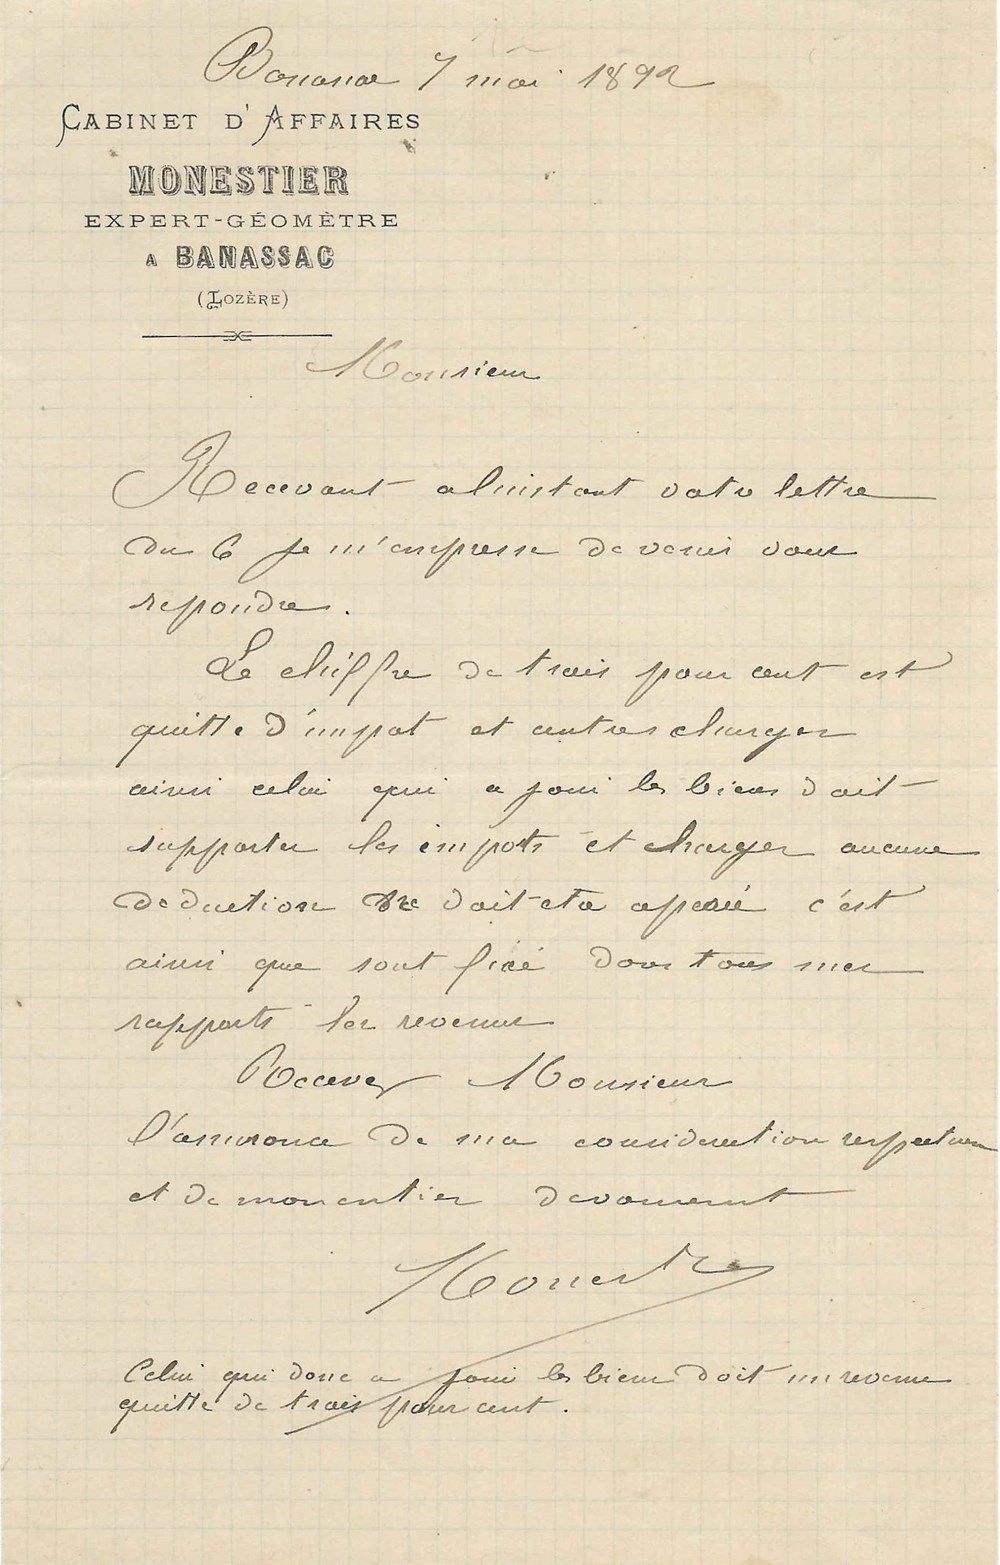 Banassac 7 mai 1892
CABINET D'AFFAIRES
MONESTIER
EXPERT-GÉOMÈTRE
A BANASSAC
(LOZÈRE)
Monsieur
Recevant a linstant votre lettre
du 6 Je m'empresse de venir vous
repondre.
Le chiffre de trois pour cent est
quitte d'impot et autres charges
ainsi celui qui a joui les biens doit
supporter les impots et charges aucune
deduction ne doit etre operé c'est
ainsi que sont fixé dans tous mes
rapports les revenus
Recevez Monsieur
l'assurance de ma consideration respectueuse
et de mon entier devouement
Monestier
Celui qui donc a joui les biens doit un revenu
quitte de trois pour cent.